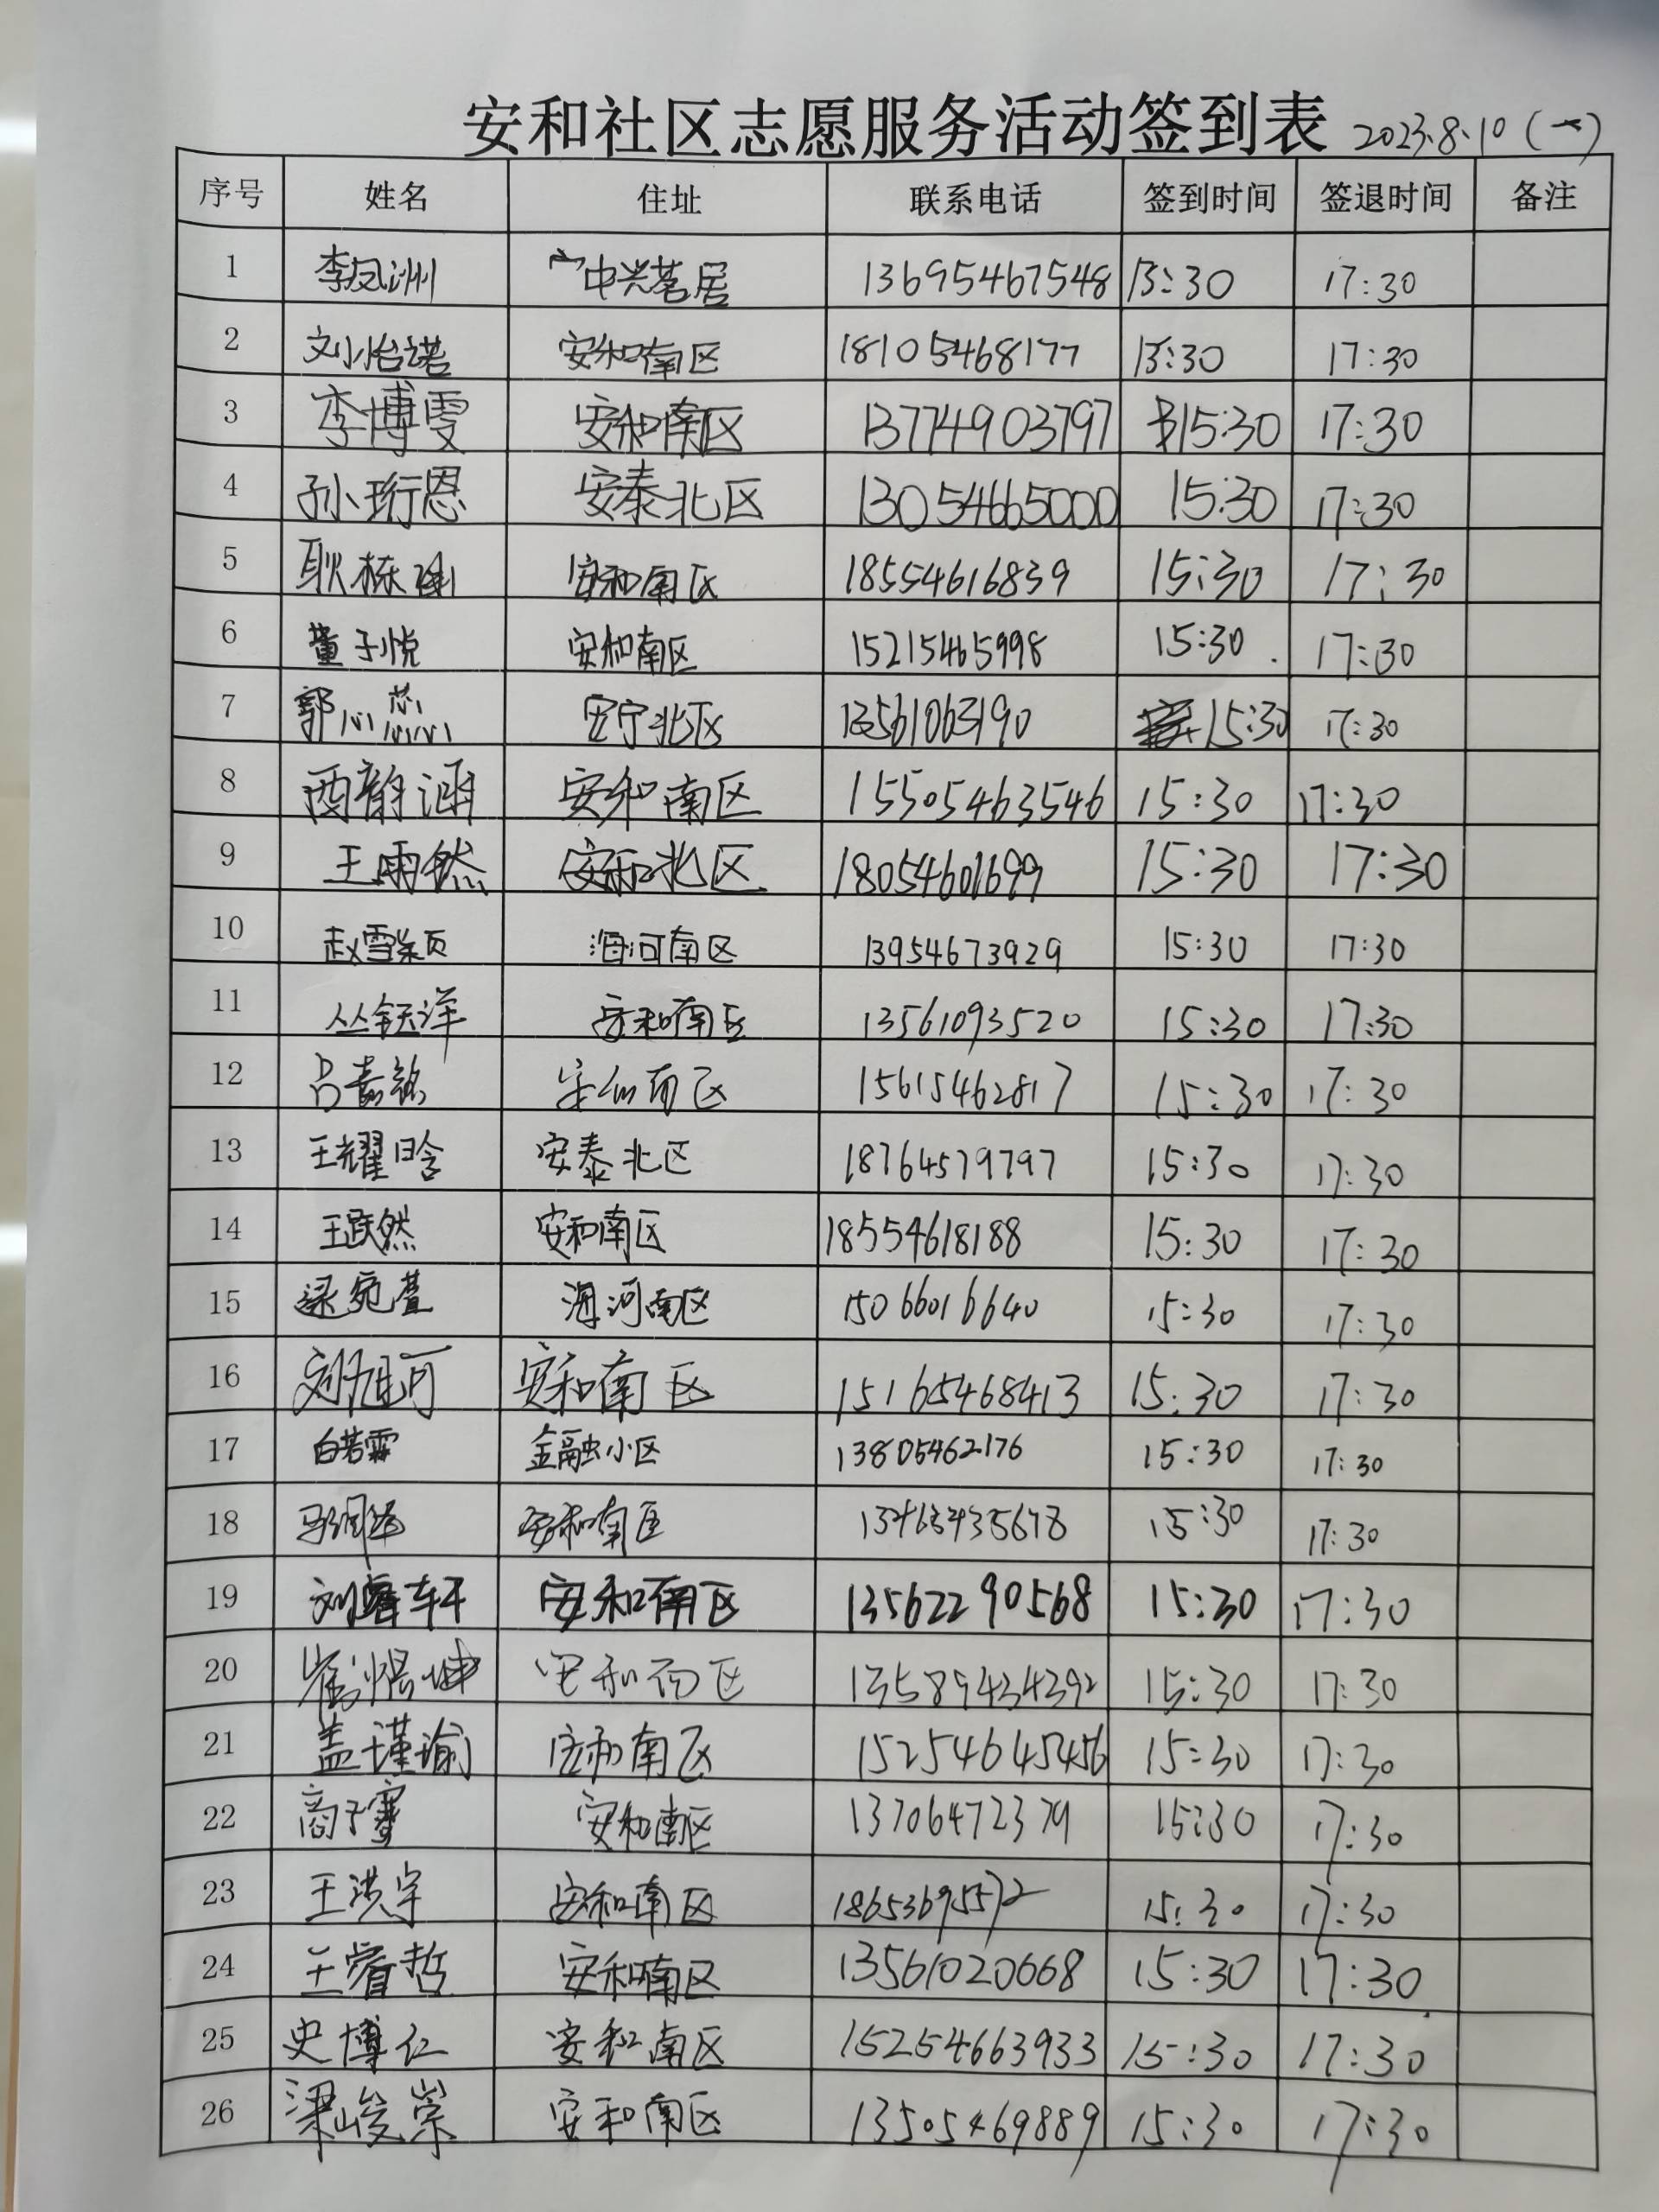 安和社区志愿服务活动签到表 2023.8.10(一)
序号 姓名 住址 联系电话 签到时间 签退时间 备注
1 李凤洲 中兴茗居 13695467548 15:30 17:30
2 刘怡诺 安和南区 18105468177 15:30 17:30
3 李博雯 安和南区 13774903797 15:30 17:30
4 孙珩恩 安泰北区 13054665000 15:30 17:30
5 耿栋 安和南区 18554616839 15:30 17:30
6 董子悦 安和南区 15215465998 15:30 17:30
7 郭心蕊 安宁北区 13561063190 15:30 17:30
8 西韵涵 安和南区 15505463546 15:30 17:30
9 王雨然 安和北区 18054601699 15:30 17:30
10 赵雪颖 海河南区 13954673929 15:30 17:30
11 丛钰洋 安和南区 13561093520 15:30 17:30
12 吕嘉铭 安和南区 15615462817 15:30 17:30
13 王耀晗 安泰北区 18764579797 15:30 17:30
14 王跃然 安和南区 18554618188 15:30 17:30
15 梁宛萱 海河南区 15066016640 15:30 17:30
16 刘旭可 安和南区 15165468413 15:30 17:30
17 白若霖 金融小区 13805462176 15:30 17:30
18 安和南区 15:30 17:30
19 刘睿轩 安和南区 13562290568 15:30 17:30
20 崔煜坤 安和南区 13589434392 15:30 17:30
21 盖瑾瑜 安和南区 15254645456 15:30 17:30
22 商子骞 安和南区 13706472379 15:30 17:30
23 王洪宇 安和南区 18653695572 15:30 17:30
24 王睿哲 安和南区 13561020668 15:30 17:30
25 史博仁 安和南区 15254663933 15:30 17:30
26 梁峻崇 安和南区 13505469889 15:30 17:30